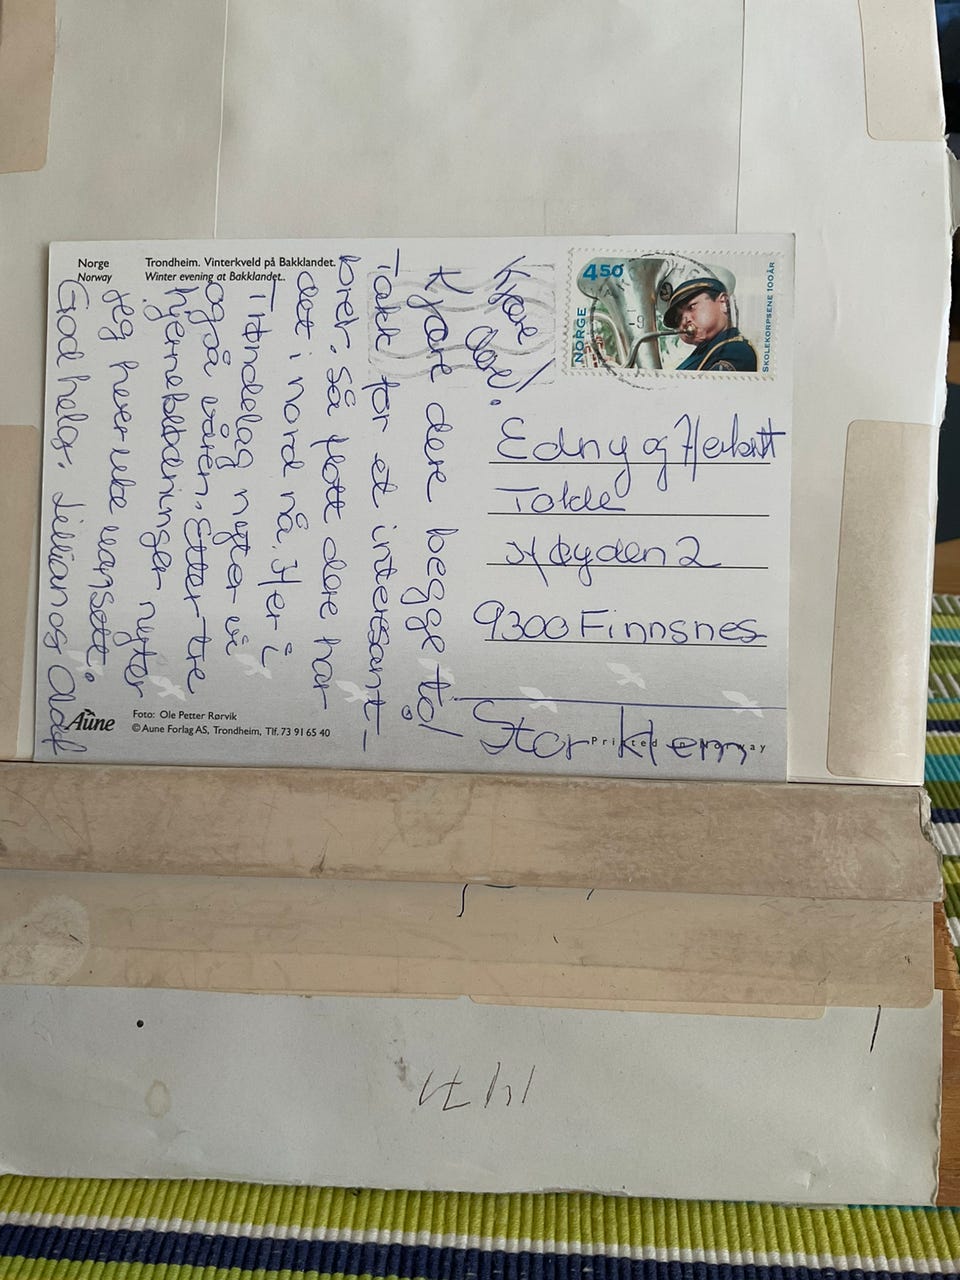 Norge
Norway
Trondheim. Vinterkveld på Bakklandet.
Winter evening at Bakklandet..
Kjære dere!
Kjære dere begge to!
Takk for et interessant
brev. Så flott dere har
det i nord nå. Her i
Trøndelag nyter vi
også våren. Etter tre
hjerneblødninger nyter
jeg hver uke uansett.
God helg. Lillian og Odd
450
NORGE
SKOLEKORPSENE 100 ÅR
Edny og Herbert
Tolde
Høyden 2
9300 Finnsnes
Stor klem
Aune
Foto: Ole Petter Rørvik
© Aune Forlag AS, Trondheim, Tlf. 73 91 65 40
Printed in Norway